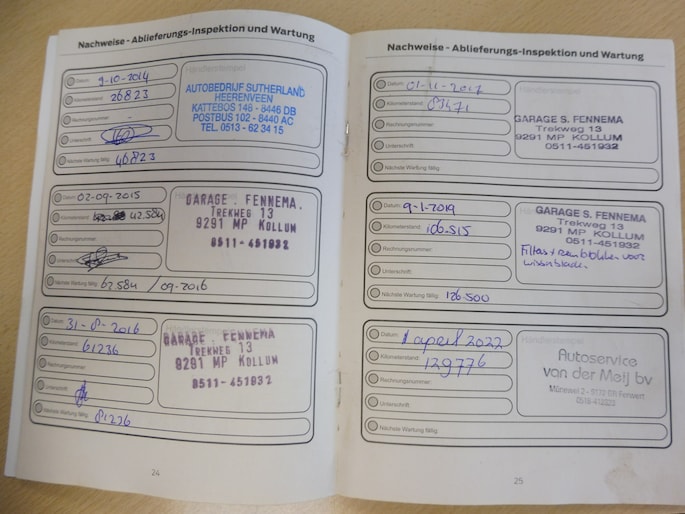 Nachweise - Ablieferungs-Inspektion und Wartung
Datum: 9-10-2014
Kilometerstand: 26823
Rechnungsnummer: -
Unterschrift:
Nächste Wartung fällig: 46823
Händlerstempel
AUTOBEDRIJF SUTHERLAND
HEERENVEEN
KATTEBOS 148 - 8446 DB
POSTBUS 102 - 8440 AC
TEL. 0513 - 62 34 15
Datum: 02-09-2015
Kilometerstand: 42.584
Rechnungsnummer:
Unterschrift:
Nächste Wartung fällig: 62584 /09-2016
GARAGE . FENNEMA.
TREKWEG 13
9291 MP KOLLUM
0511-451932
Datum: 31-8-2016
Kilometerstand: 61236
Rechnungsnummer:
Unterschrift:
Nächste Wartung fällig: 81236
GARAGE . FENNEMA
TREKWEG 13
9291 MP KOLLUM
0511-451932
24
Nachweise - Ablieferungs-Inspektion und Wartung
Datum: 01-11-2017
Kilometerstand: 83471
Rechnungsnummer:
Unterschrift:
Nächste Wartung fällig:
Händlerstempel
GARAGE S. FENNEMA
Trekweg 13
9291 MP KOLLUM
0511-451932
Datum: 9-1-2019
Kilometerstand: 106.515
Rechnungsnummer:
Unterschrift:
Nächste Wartung fällig: 126.500
GARAGE S. FENNEMA
Trekweg 13
9291 MP KOLLUM
0511-451932
Filters + remblokken voor
wisserbladen
Datum: 1 april 2022
Kilometerstand: 129776
Rechnungsnummer:
Unterschrift:
Nächste Wartung fällig:
Händlerstempel
Autoservice
van der Meij bv
Ferwert
25